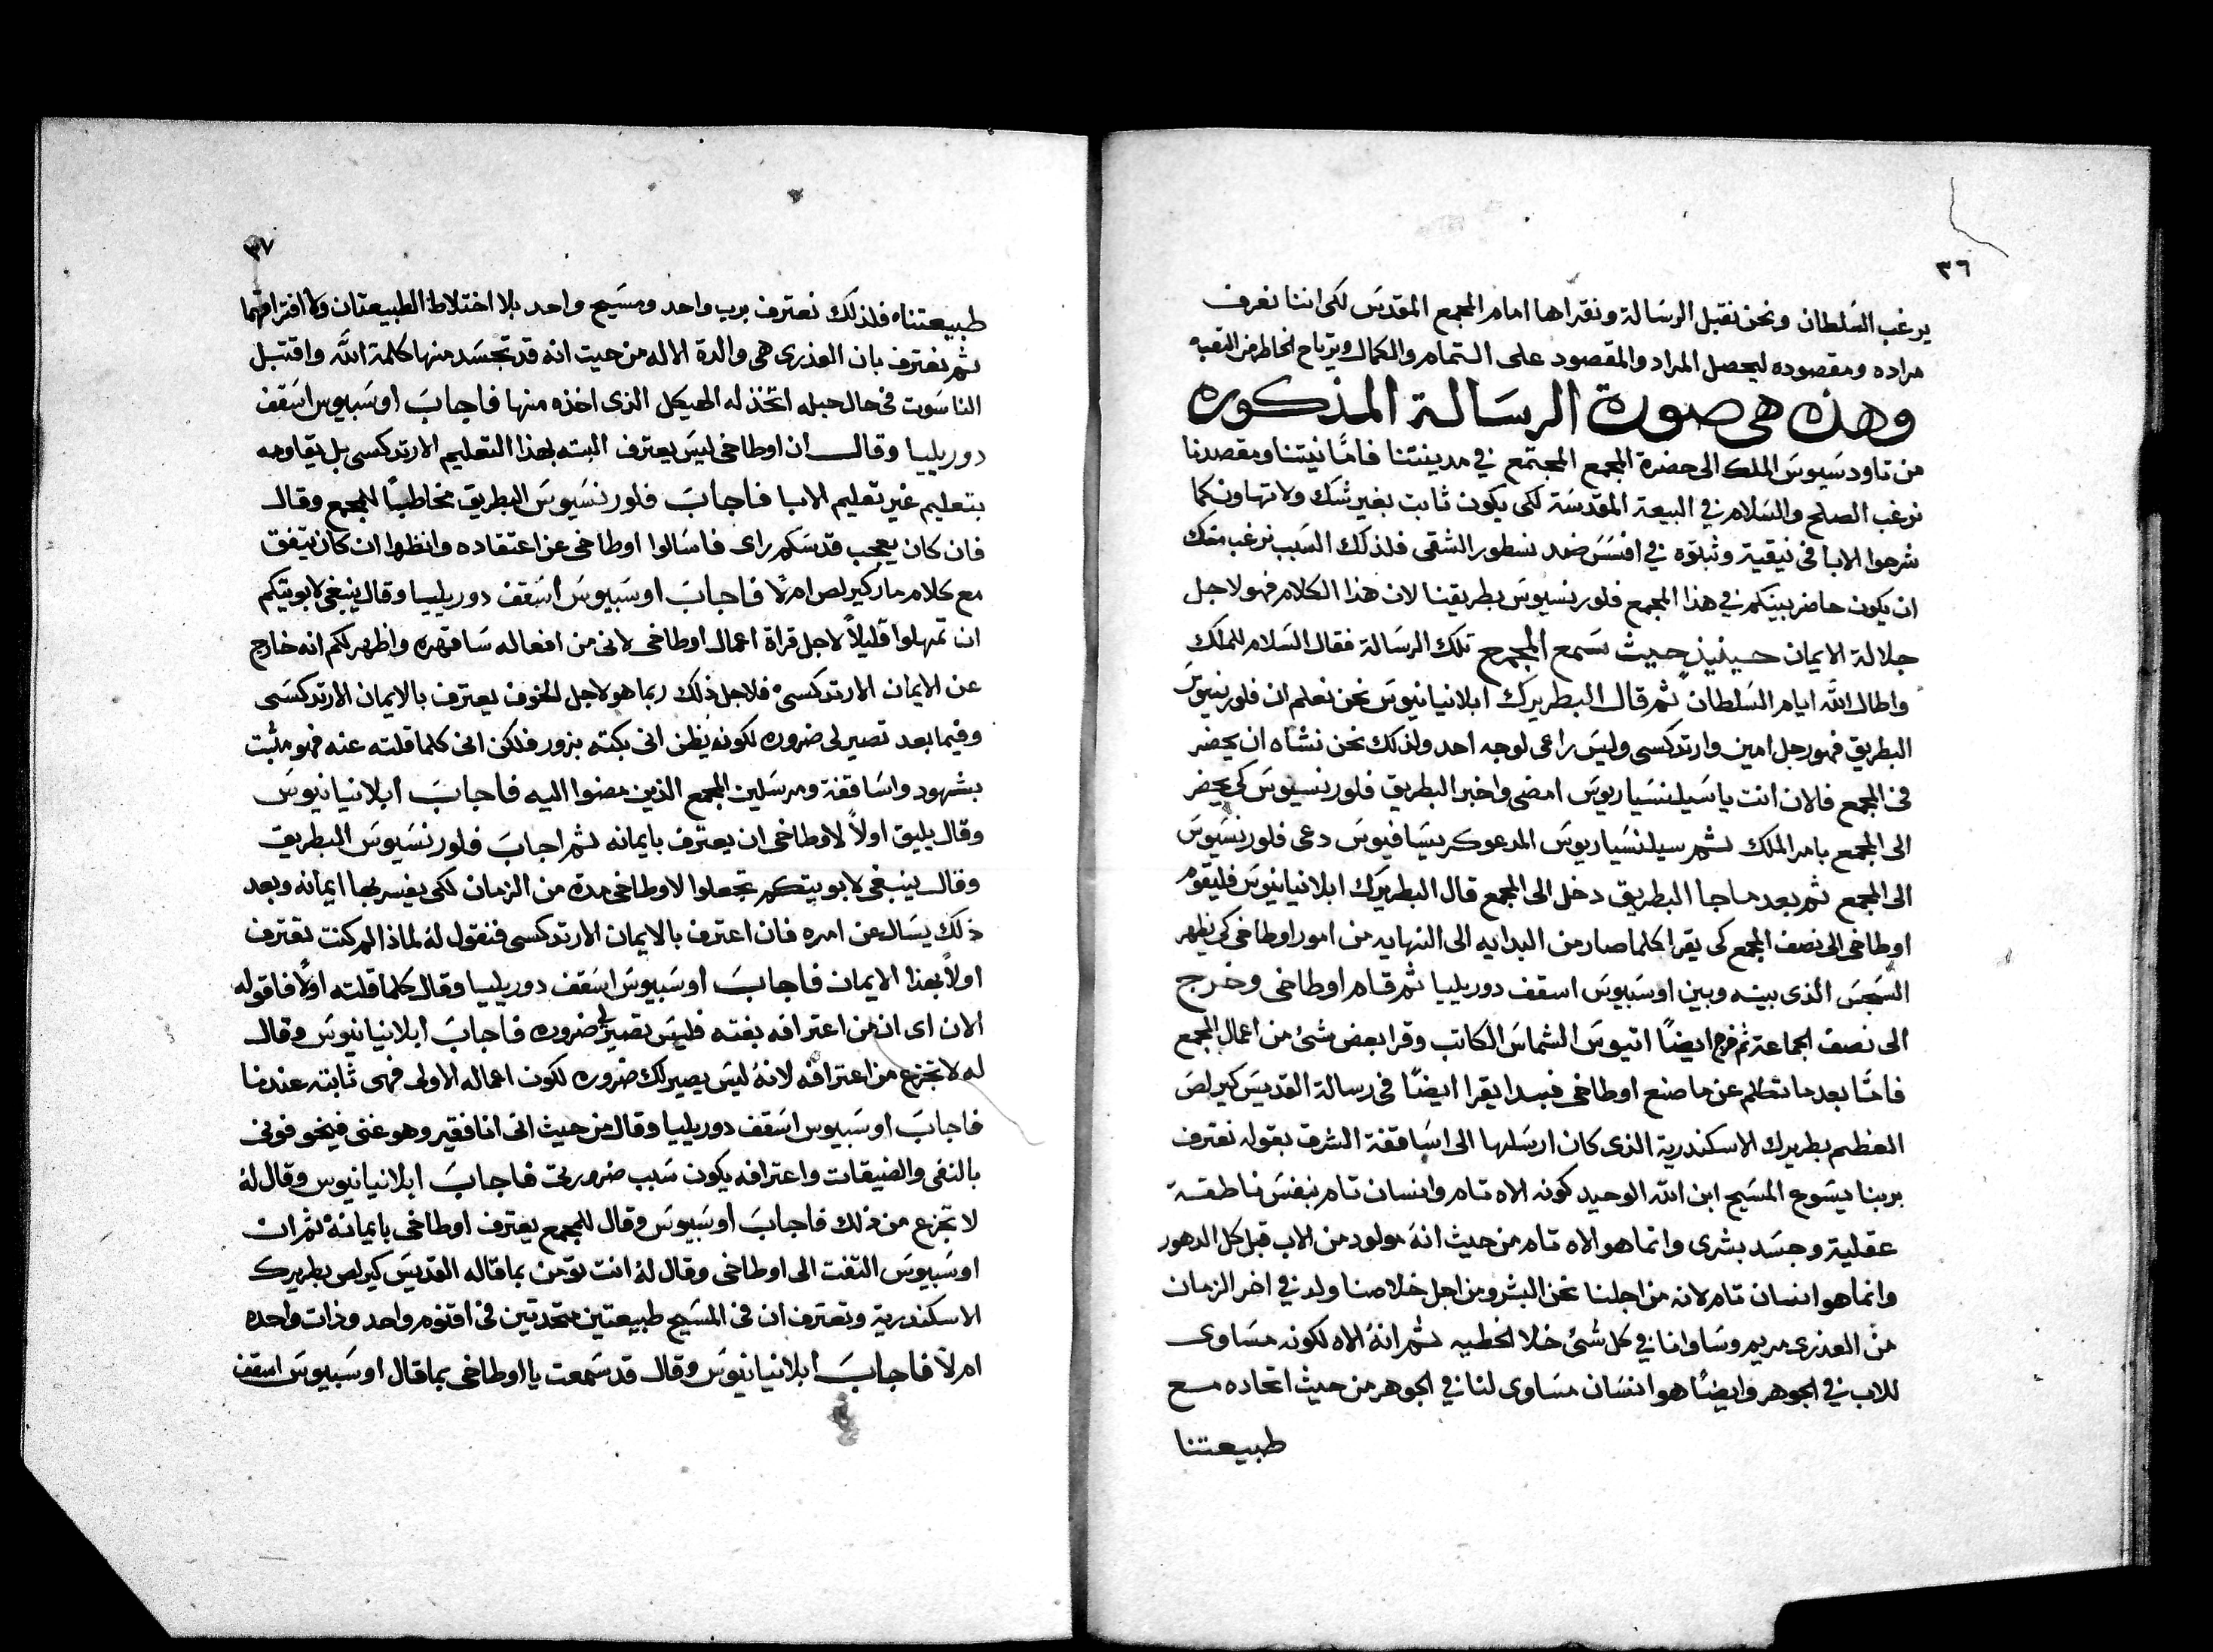 ٣٦
يرغب السَلطان ونحن نقبل الرسَالة ونقراها امام المجمع المقدسَ لكى اننا نعرف
مراده ومقصوده ليحصل المراد والمقصود على التمام والكمال ويرتاح الخاطر من التعبه
وهذه هى صورة الرسَالة المذكوره
من تاودسَيوسَ الملك الى حضرة المجمع المجتمع في مدينتنا فامَّا نيتنا ومقصدنا
نرغب الصلح والسَلام في البيعة المقدسَة لكى يكون ثابت بغير شك ولا تهاون كما
شرحوا الابا فى نيقية وثبتوه في افسَسَ ضد نسطور الشقى فلذلك السَبب نرغب منك
ان يكون حاضر بينكم في هذا المجمع فلورنسيوسَ بطريقنا لان هذا الكلام فهو لاجل
جلالة الايمان حينيذٍ حيث سَمع المجمع تلك الرسَالة فقال السَلام للملك
واطال اللَّه ايام السَلطان ثم قال البطريرك ابلانيانيوسَ نحن نعلم ان فلورنسيوسَ
البطريق فهو رجل امين وارتدكسى وليسَ راعى لوجه احد ولذلك نحن نشاه ان يحضر
فى المجمع فالان انت ياسَيلنسَياريوسَ امضى واخبر البطريق فلورنسيوسَ كى يحضر
الى المجمع بامر الملك ثم سيلنسَياريوسَ المدعو كريسَافيوسَ دعى فلورنسَيوسَ
الى المجمع ثم بعد ما جا البطريق دخل الى المجمع قال البطريَرك ابلانيانيوسَ فليقوم
اوطاخى الى نصف المجمع كى يقرا كلما صار من البدايه الى النهايه من امور اوطاخى كى يظهر
السَجسَ الذى بينه وبين اوسَبيوسَ اسقف دوريليا ثم قام اوطاخى وخرج
الى نصف الجماعة ثم خرج ايضًا اتيوسَ الشماسَ الكاتب وقرا بعض شئ من اعمال المجمع
فامَّا بعد ما تكلم عن ما صنع اوطاخى فبدا يقرا ايضًا فى رسالة القديسَ كيرلصَ
العظيم بطريرك الاسكندرية الذى كان ارسَلها الى اسَاقفة الشرق بقوله نعترف
بربنا يسَوع المسَيح ابن اللَّه الوحيد كونه الاه تام وانسان تام بنفسَ ناطقة
عقلية وجسَد بشرى وانما هو الاه تام من حيث انهُ مولود من الاب قبل كل الدهور
وانما هو انسان تام لانه من اجلنا نحن البشر ومن اجل خلاصنا ولد في اخر الزمان
من العذرى مريم وسَاوانا في كل شئ خلا الخطيه ثم انهُ الاه لكونه مسَاوى
للاب في الجوهر وايضًا هو انسَان مسَاوى لنا في الجوهر من حيث اتحاده مع
طبيعتنا
٣٧
طبيعتناه فلذلك نعترف برب واحد ومسَيح واحد بلا اختلاط الطبيعتان ولا افتراقهما
ثم نعترف بان العذرى هى والدة الاله من حيث انه قد تجسَد منها كلمة اللَّه واقتبل
الناسَوت فى حال حبله اتخذ له الهيكل الذى اخذه منها فاجابَ اوسَبيوس اسَقف
دوريليا وقال ان اوطاخى ليسَ يعترف البته بهذا التعليم الارتدكسى بل يقاومه
بتعليم غير تعليم الابا فاجابَ فلورنسَيوسَ البطريق مخاطبًا للمجمع وقال
فان كان يعجب قدسَكم راى فاسَالوا اوطاخى عن اعتقاده وانظروا ان كان يتفق
مع كلام مار كيرلص ام لا فاجابَ اوسَبيوسَ اسَقف دوريليا وقال ينبغى لابوتيكم
ان تمهلوا قليلاً لاجل قراة اعمال اوطاخى لانى من افعاله سَاقهره واظهر لكم انه خارج
عن الايمان الارتدكسى فلاجل ذلك ربما هو لاجل الخوف يعترف بالايمان الارتدكسَى
وفيما بعد تصير لى ضروره لكونه يظن انى بكته بزور فلكن انى كلما قلته عنه فهو مثبت
بشهود واسَاقفة ومرسَلين المجمع الذين مضوا اليه فاجابَ ابلانيانيوسَ
وقال يليق اولاً لاوطاخى ان يعترف بايمانه ثم اجابَ فلورنسَيوسَ البطريق
وقال ينبغى لابويتكم تجعلوا لاوطاخى مدة من الزمان لكى يفسر بها ايمانه وبعد
ذلك يسَال عن امره فان اعترف بالايمان الارتدكسى فنقول لهُ لماذا لم كنت تعترف
اولاً بهذا الايمان فاجابَ اوسَبيوسَ اسَقف دوريليا وقال كلما قلته اولاً فاقوله
الان اى ان من اعترافه بغته فليسَ تصير لى ضروره فاجابَ ابلانيانيوسَ وقال
له لا تجزع من اعترافه لانهُ ليسَ يصير لك ضروره لكون اعماله الاولى فهى ثابته عندنا
فاجابَ اوسَبيوس اسَقف دوريليا وقال من حيث انى انا فقير وهو غنى فيخوفونى
بالنفى والضيقات واعترافه يكون سَبب ضرورتى فاجابَ ابلانيانيوس وقال لهُ
لا تجزع من ذلك فاجابَ اوسَبيوسَ وقال للمجمع يعترف اوطاخى بايمانهُ ثم ان
اوسَبيوسَ التفت الى اوطاخى وقال لهُ انت تؤمن بما قاله القديسَ كيرلص بطريرك
الاسكندرية وتعترف ان فى المسَيح طبيعتين متحدتين فى اقنوم واحد وذات واحده
ام لا فاجابَ ابلانيانيوسَ وقال قد سَمعت يا اوطاخى بما قال اوسَبيوسَ اسقف